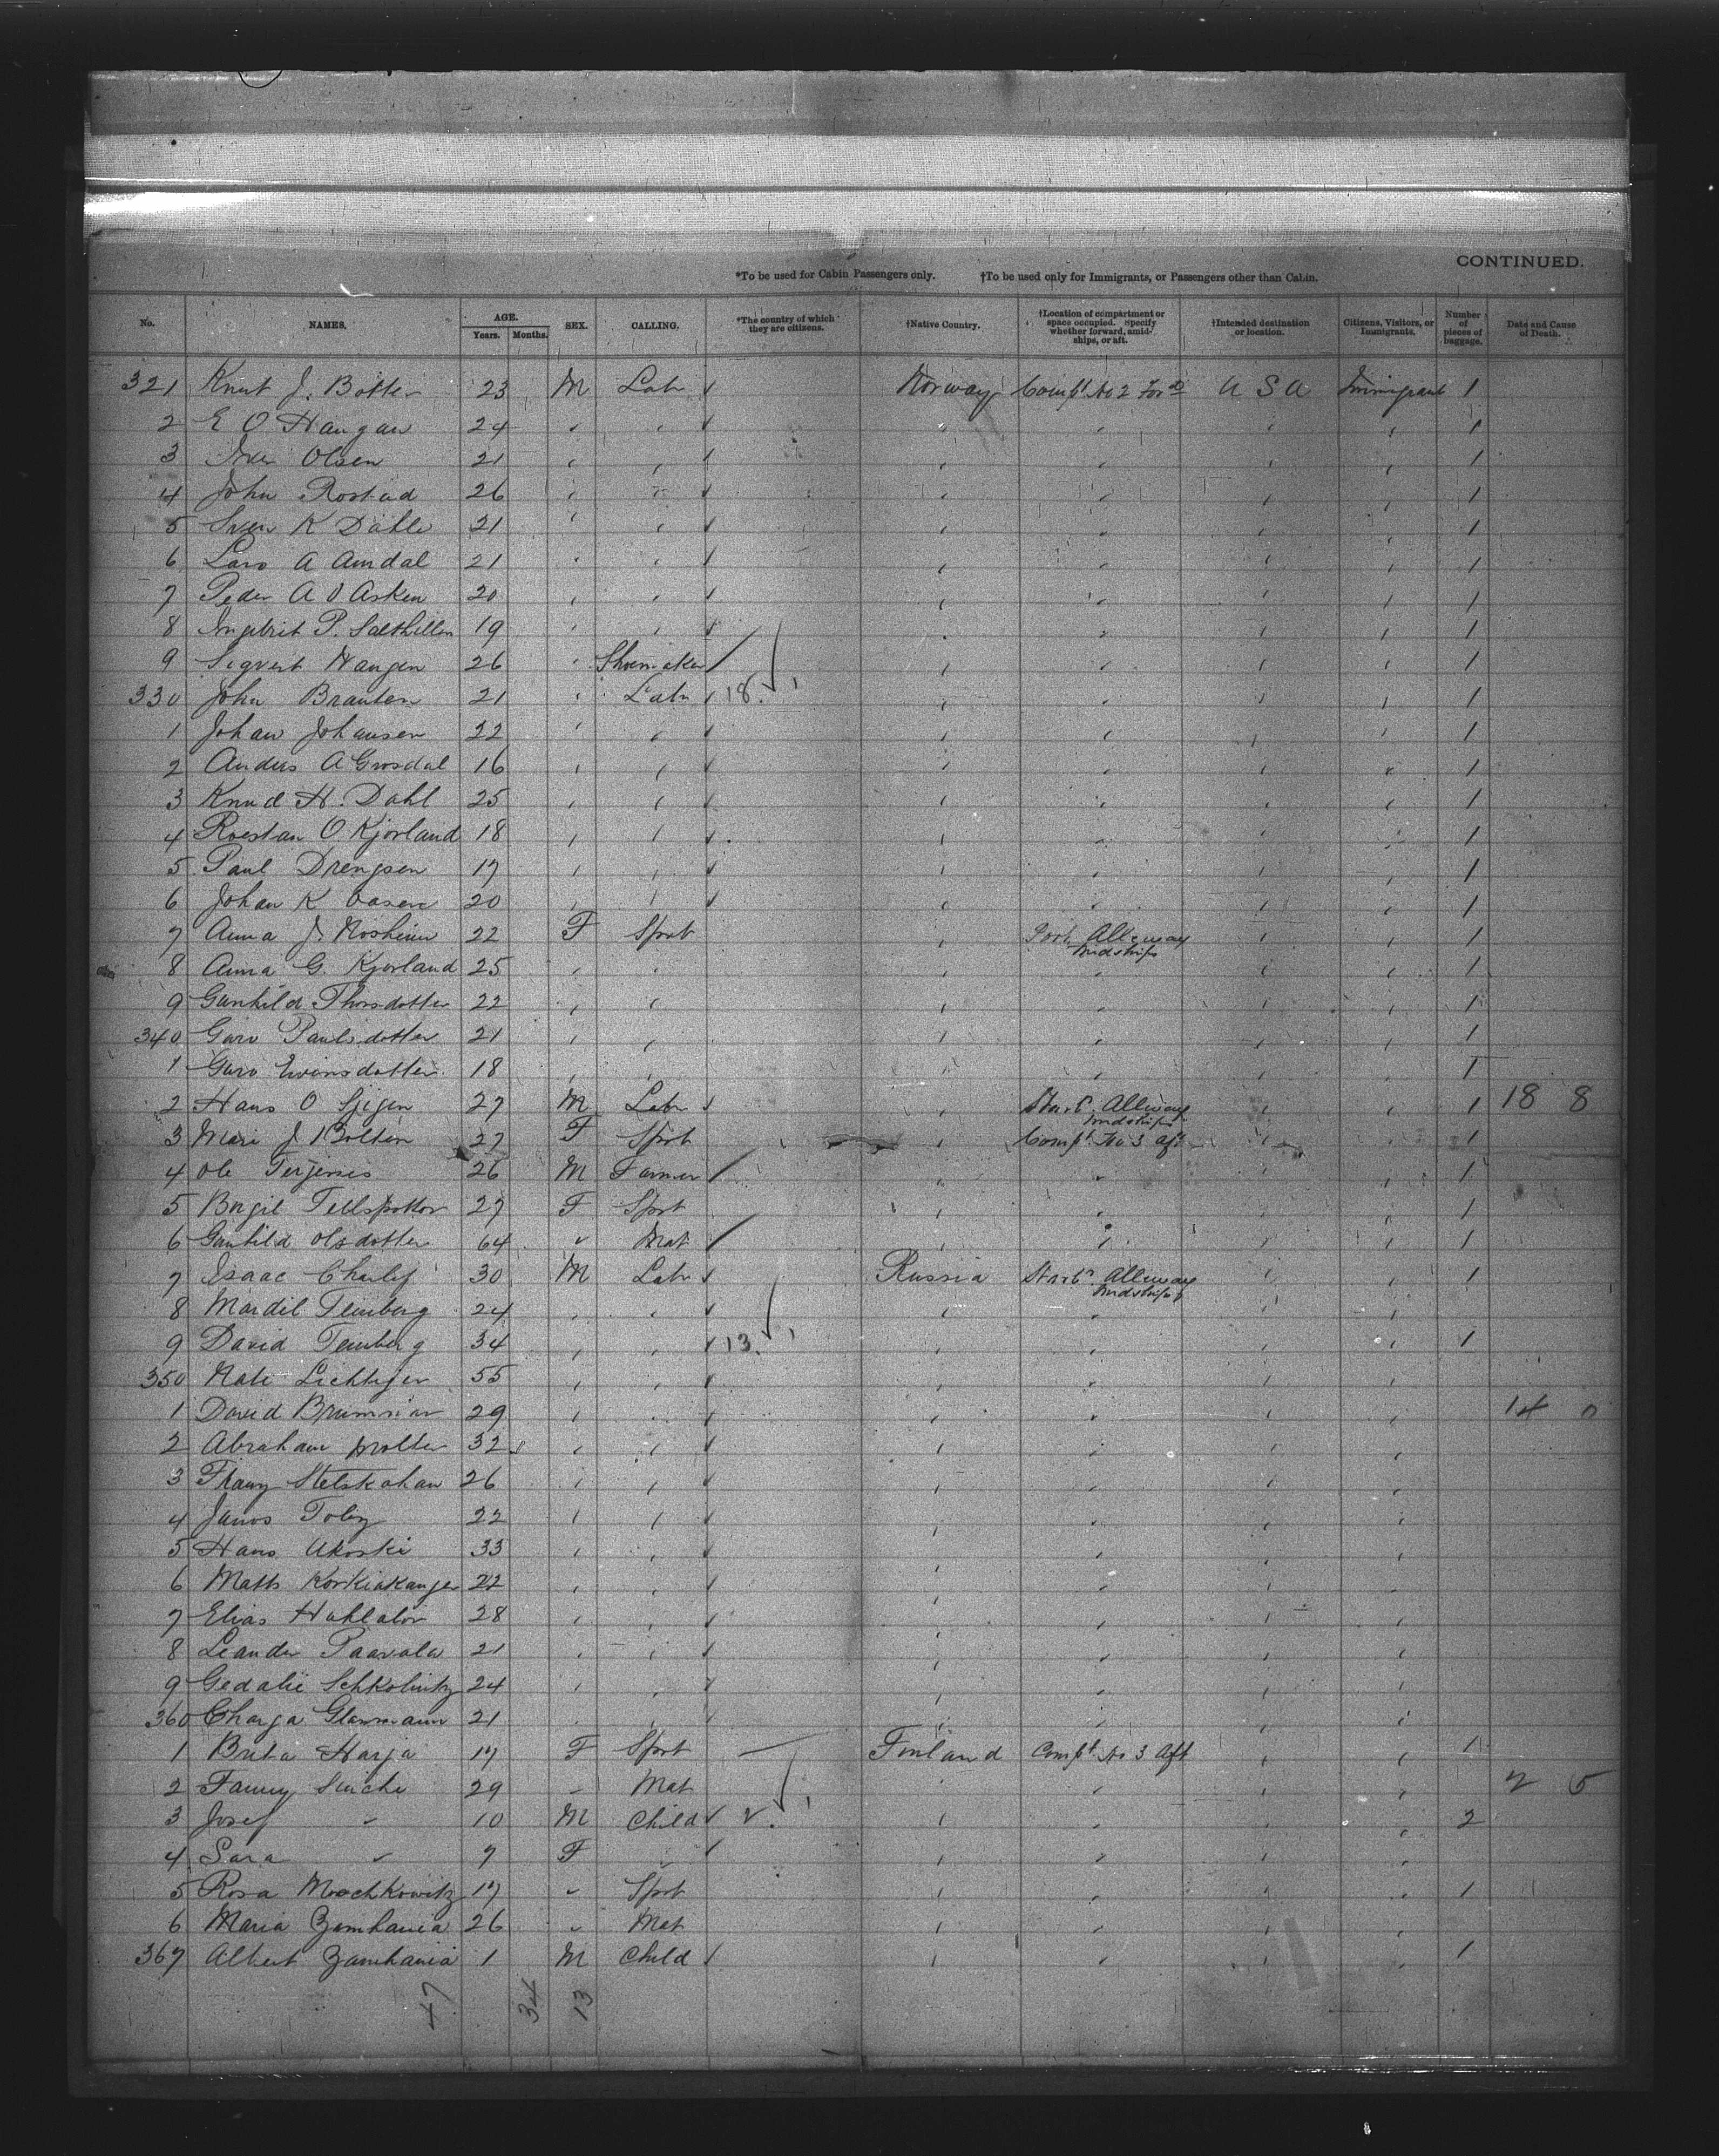 CONTINUED.
*To be used for Cabin Passengers only. †To be used only for Immigrants, or Passengers other than Cabin.
No. NAMES. AGE. Years. Months. SEX. CALLING. *The country of which they are citizens. †Native Country. †Location of compartment or space occupied. Specify whether forward, amidships, or aft. †Intended destination or location. Citizens, Visitors, or Immigrants. Number of pieces of baggage. Date and Cause of Death.
321 Knut J. Botten 23 M Labr Norway Compt No 2 Ford U S A Immigrant 1
2 E O Haugan 24 1
3 Iver Olsen 21 1
4 John Rostad 26 1
5 Sven K Dahle 21 1
6 Lars A Amdal 21 1
7 Peder A O Asken 20 1
8 Ingebrit P. 19 1
9 Sigvert Haugen 26 Shoemaker 1
330 John Brauten 21 Labr 18. 1
1 Johan Johansen 22 1
2 Anders A Grosdal 16 1
3 Knud H. Dahl 25 1
4 O Kjorland 18 1
5 Paul Drengsen 17 1
6 Johan K Aasen 20 1
7 Anna J. 22 F Spst Port Alleway Midships 1
8 Anna G. Kjorland 25 1
9 Gunhild Thorsdotter 22 1
340 Guro Paulsdotter 21 1
1 Guro 18 1
2 Hans O 27 M Labr Starbd Alleway Midships 1 18 8
3 Mari J Bolten 27 F Spst Compt No 3 Aft 1
4 Ole Terjersis 26 M Farmer 1
5 27 F Spst 1
6 Gunhild Olsdotter 64 Mat 1
7 Isaac 30 M Labr Russia Starbd Alleway Midships 1
8 24
9 David 34 13. 1
350 55
1 David 29 14 0
2 Abraham Molter 32
3 26
4 Janos 22
5 Hans 33
6 Matts 22
7 Elias 28
8 Leander Paavola 21
9 Gedalie 24
360 21
1 Brita Harja 17 F Spst Finland Compt No 3 Aft 1
2 Fanny 29 Mat 2 5
3 Josef " 10 M Child 2. 2
4 Sara " 7 F
5 Rosa Moschkowitz 17 Spst 1
6 Maria 26 Mat
367 Albert 1 M Child 1
47 34 13